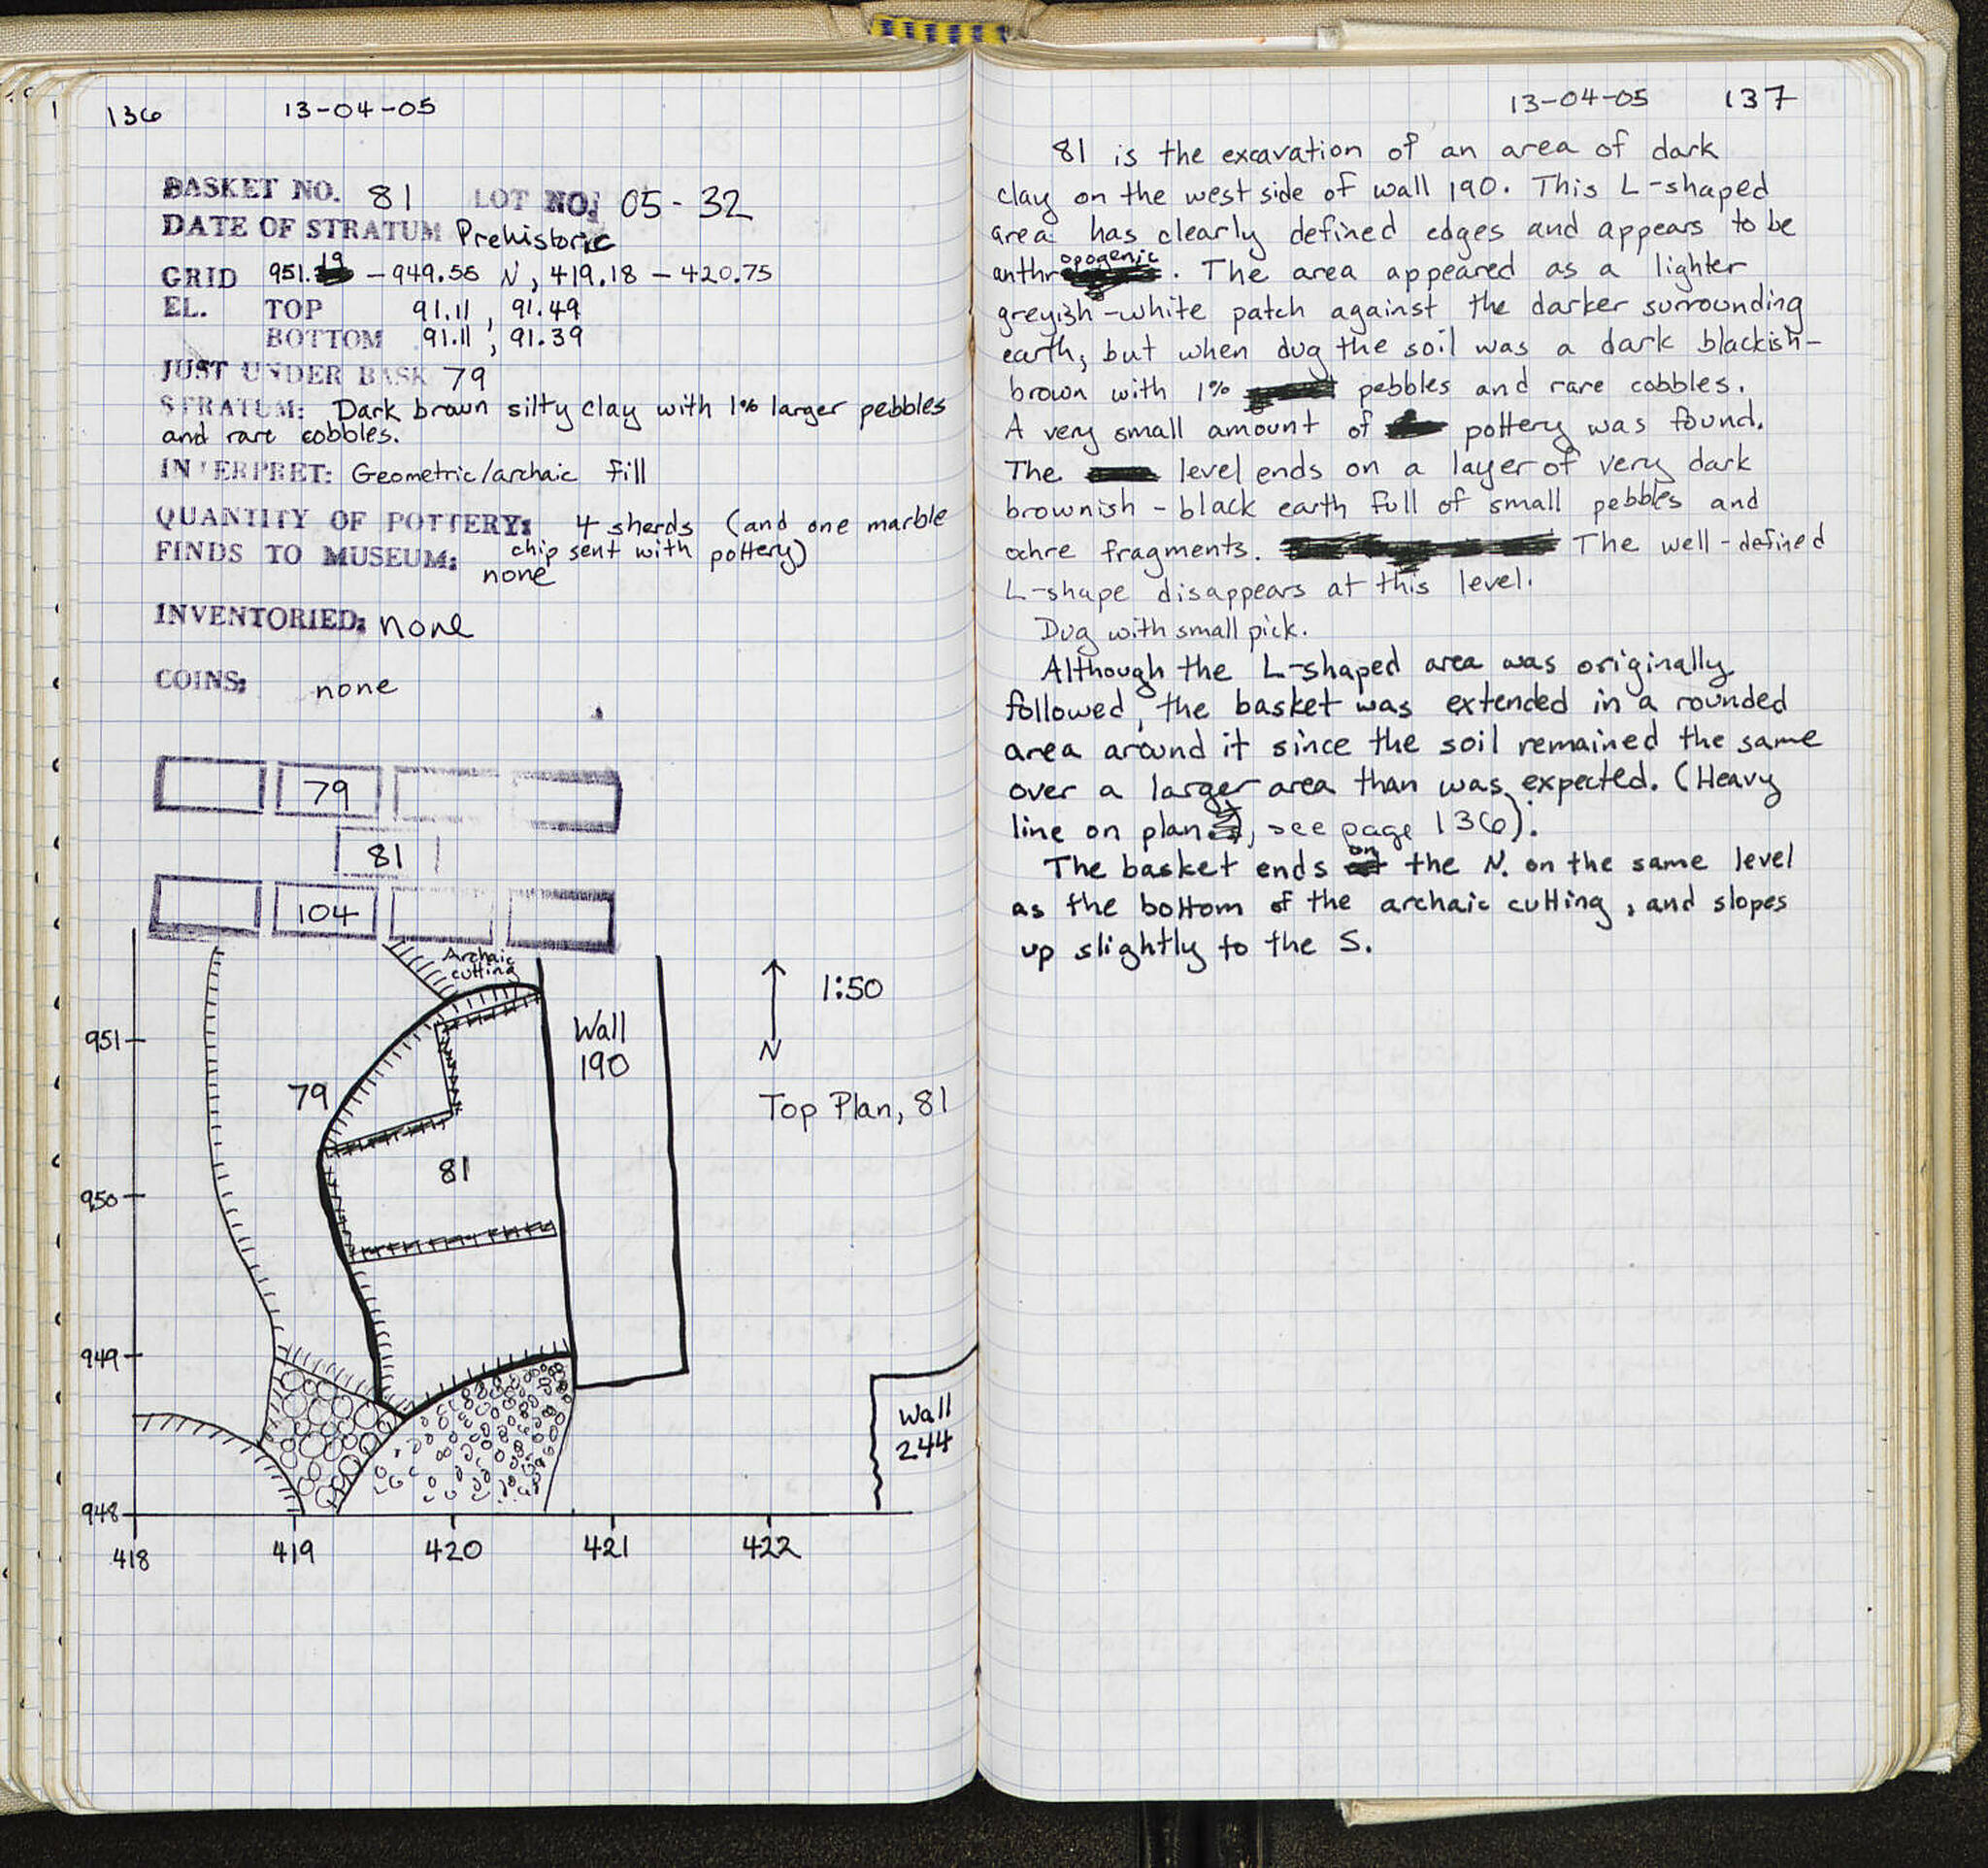 136 13-04-05
BASKET NO. 81 LOT NO. 05-32
DATE OF STRATUM Prehistoric
GRID 951.19 - 949.55 N, 419.18 - 420.75
EL. TOP 91.11, 91.49
BOTTOM 91.11, 91.39
JUST UNDER BASK 79
STRATUM: Dark brown silty clay with 1% larger pebbles
and rare cobbles.
INTERPRET: Geometric/archaic fill
QUANTITY OF POTTERY: 4 sherds (and one marble
chip sent with pottery)
FINDS TO MUSEUM: none
INVENTORIED: none
COINS: none
79
81
104
Archaic
cutting
Wall
190
1:50
N
Top Plan, 81
951
79
81
950
949
Wall
244
948
418 419 420 421 422
13-04-05 137
81 is the excavation of an area of dark
clay on the west side of wall 190. This L-shaped
area has clearly defined edges and appears to be
anthropogenic. The area appeared as a lighter
greyish-white patch against the darker surrounding
earth, but when dug the soil was a dark blackish-
brown with 1% pebbles and rare cobbles.
A very small amount of pottery was found.
The level ends on a layer of very dark
brownish-black earth full of small pebbles and
ochre fragments. The well-defined
L-shape disappears at this level.
Dug with small pick.
Although the L-shaped area was originally
followed, the basket was extended in a rounded
area around it since the soil remained the same
over a larger area than was expected. (Heavy
line on plan, see page 136).
The basket ends on the N. on the same level
as the bottom of the archaic cutting, and slopes
up slightly to the S.